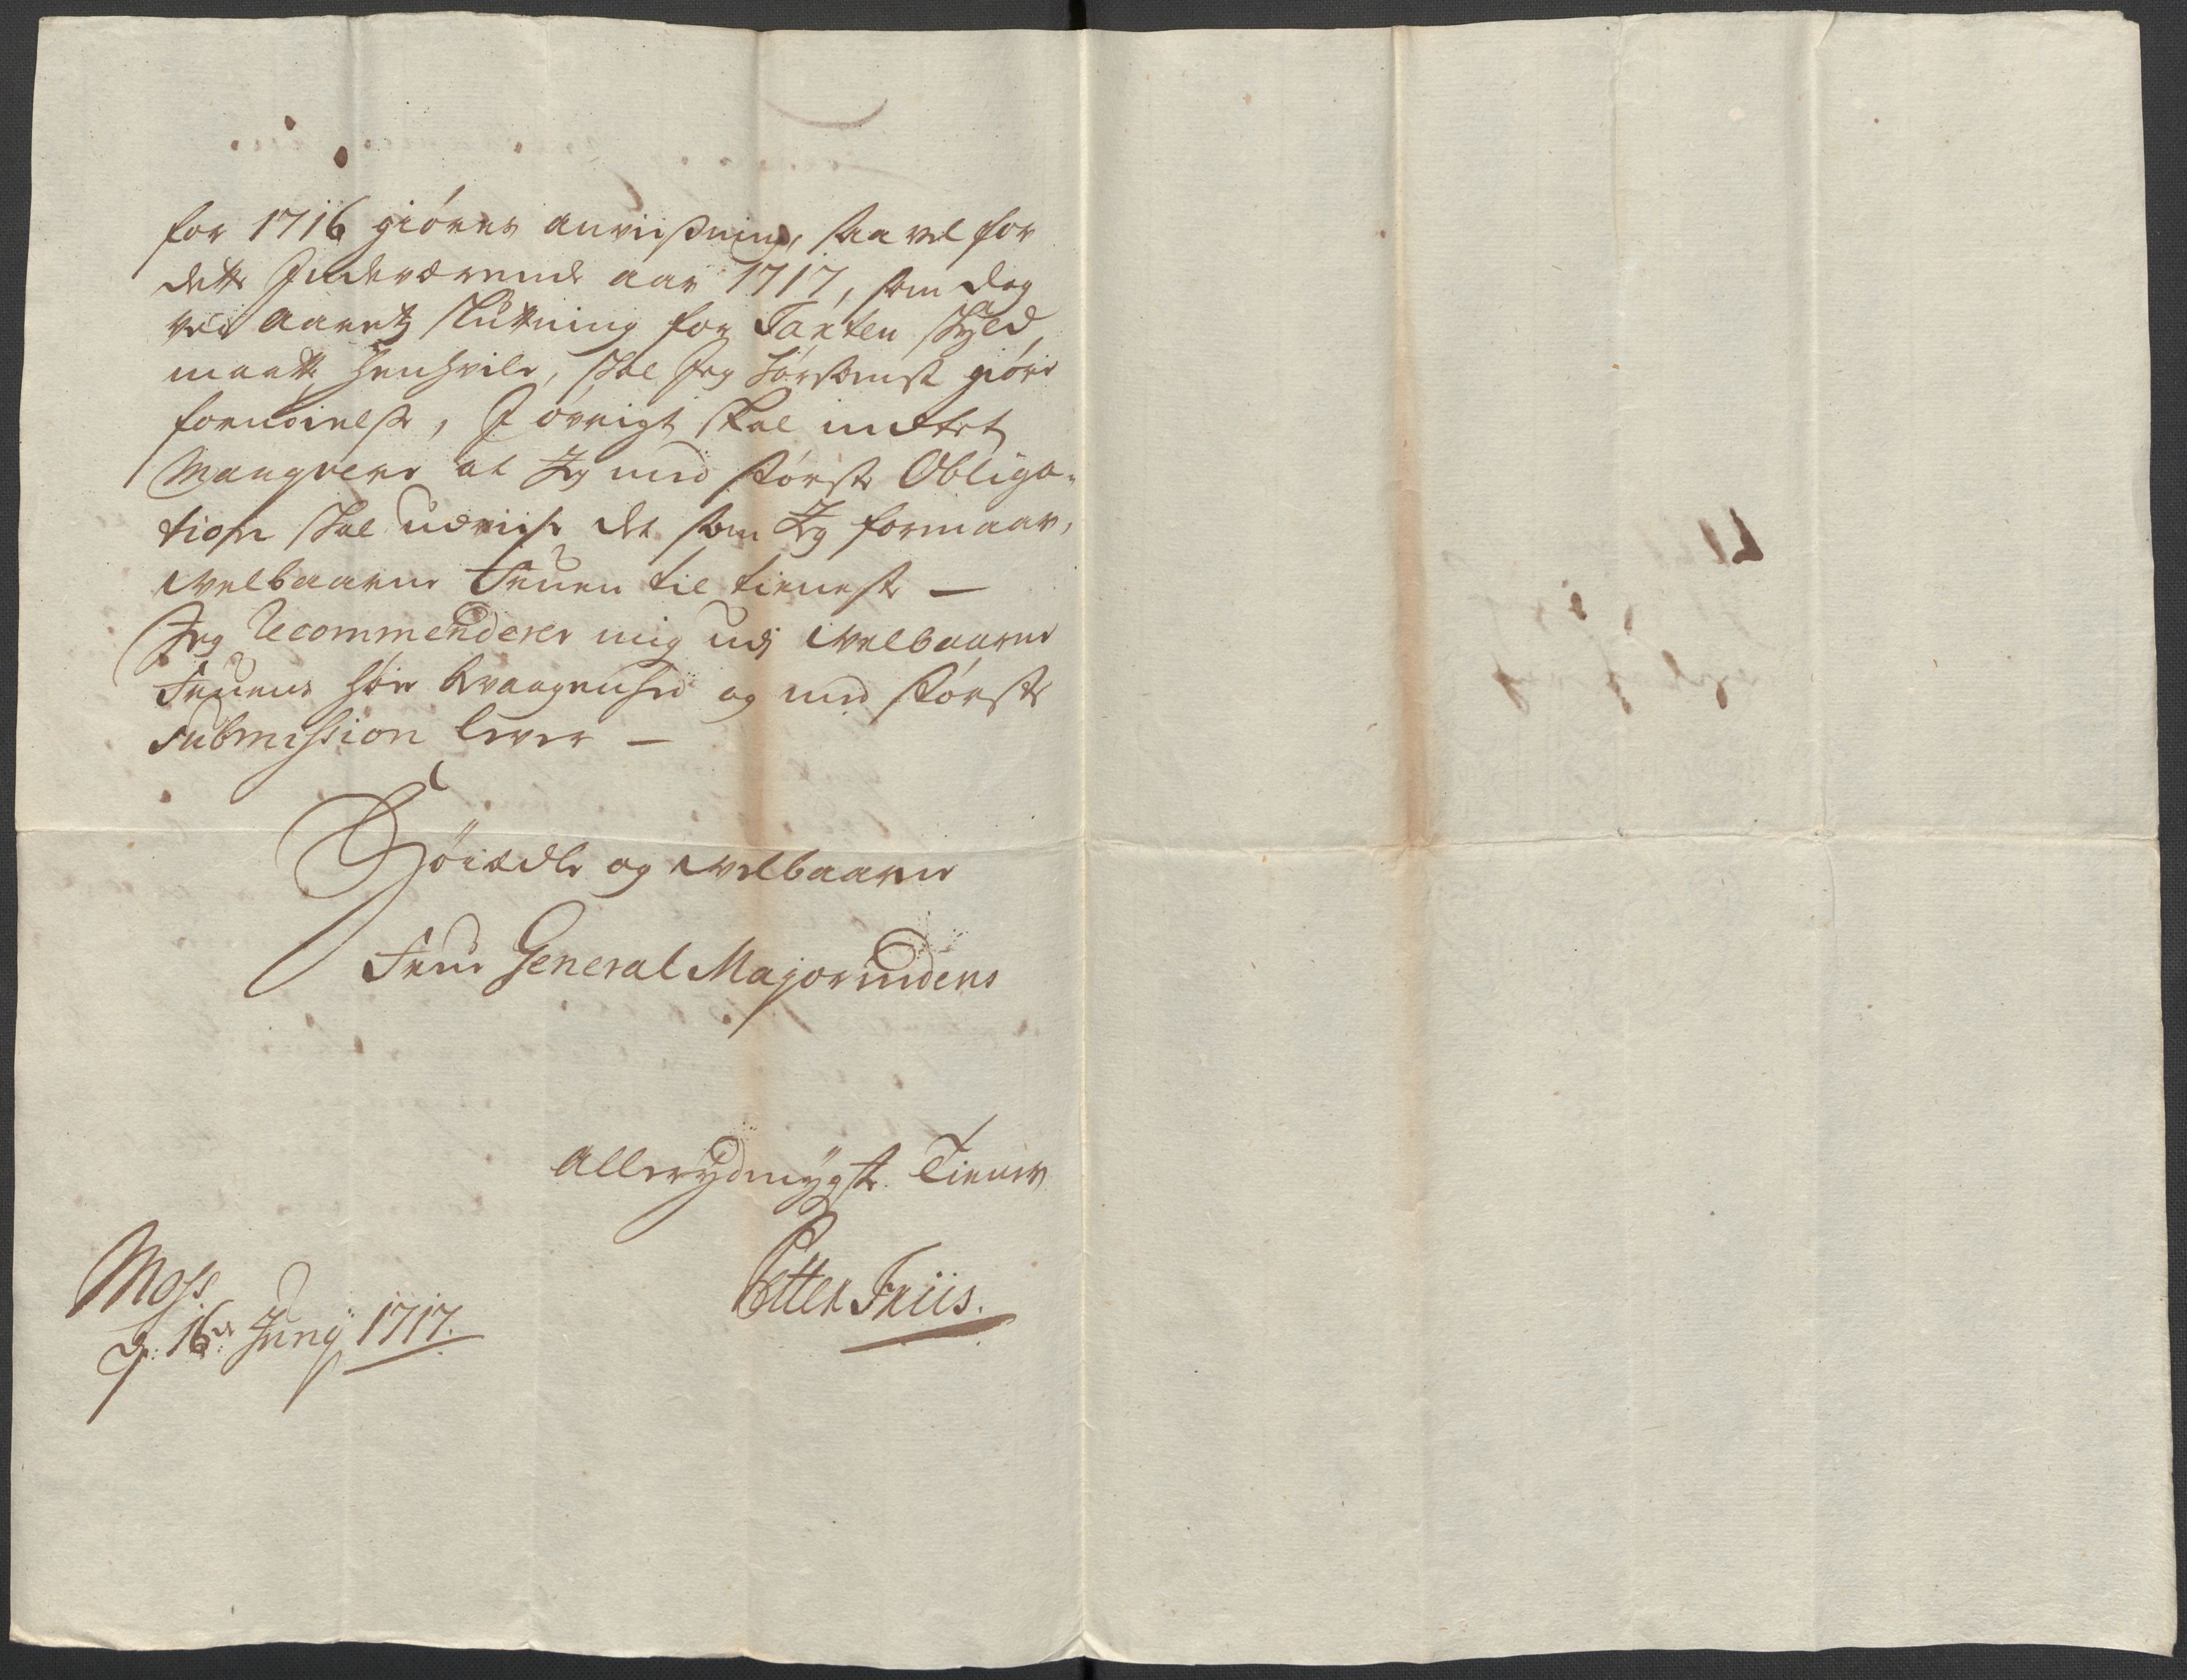 for 1716 giøres anviisning, saa vel for
dette Indeværende aar 1717, som dog
ved Aaretz slutning for Taxten skyld
maatte henhvile, skal Jeg hørsomst giøre
fornøielse, I øvrigt skal indtet
Manqvere at Jeg med største Obliga-
tion skal udviise det som Jeg formaar,
Welbaarne Fruen til tieneste —
Jeg Recommenderer mig udj Welbaarne
Fruens høie bevaagenhed og med største
Submission lever —
Höiædle og Welbaarne
Frue General Majorindens
Allerydmygste Tiener
Petter Friis.
Moss
d. 16de Junij 1717.